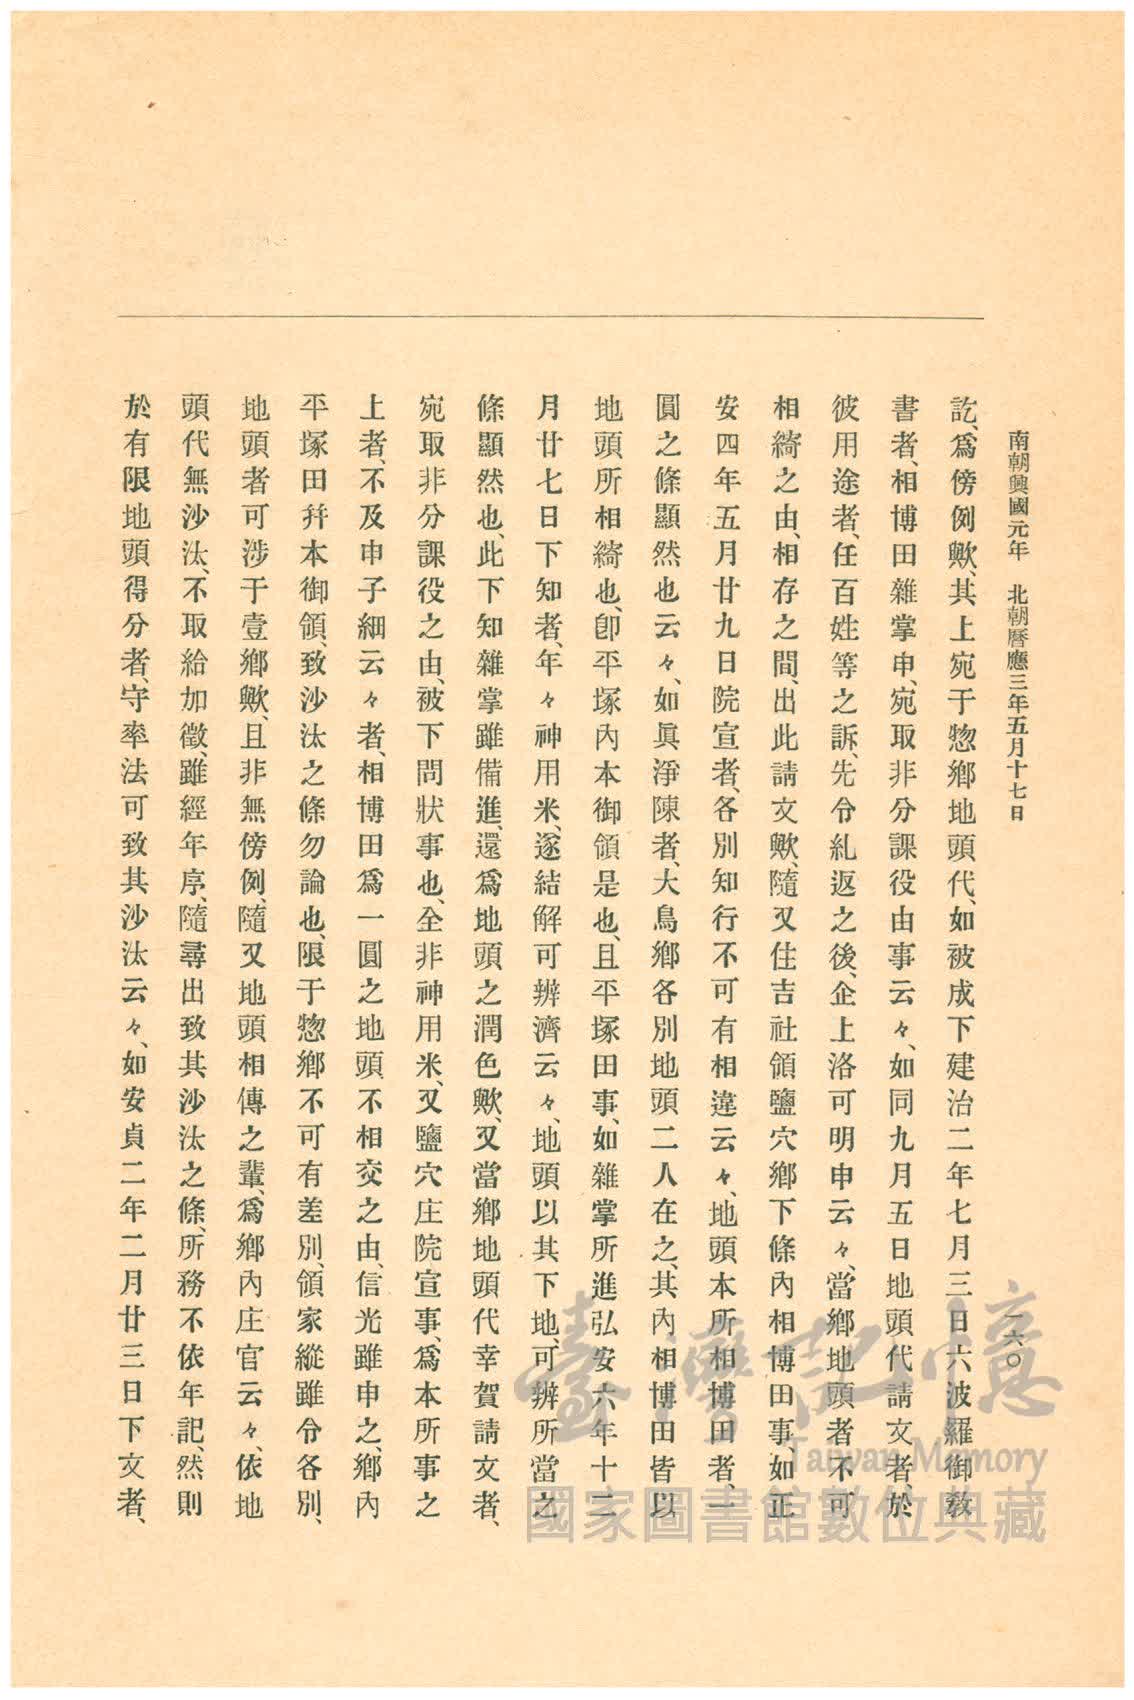 南朝興國元年　北朝曆應三年五月十七日
一六〇
訖、爲傍例歟、其上宛于惣鄉地頭代、如被成下建治二年七月三日六波羅御敎
書者、相博田雜掌申、宛取非分課役由事云々、如同九月五日地頭代請文者、於
彼用途者、任百姓等之訴、先令糺返之後、企上洛可明申云々、當鄉地頭者不可
相綺之由、相存之間、出此請文歟、隨又住吉社領鹽穴鄉下條內相博田事、如正
安四年五月廿九日院宣者、各別知行不可有相違云々、地頭本所相博田者、一
圓之條顯然也云々、如眞淨陳者、大鳥鄉各別地頭二人在之、其內相博田皆以
地頭所相綺也、卽平塚內本御領是也、且平塚田事、如雜掌所進弘安六年十二
月廿七日下知者、年々神用米、遂結解可辨濟云々、地頭以其下地、可辨所當之
條顯然也、此下知雜掌雖備進、還爲地頭之潤色歟、又當鄉地頭代幸賀請文者、
宛取非分課役之由、被下問狀事也、全非神用米、又鹽穴庄院宣事、爲本所事之
上者、不及申子細云々者、相博田爲一圓之地頭、不相交之由、信光雖申之、鄉內
平塚田幷本御領、致沙汰之條勿論也、限于惣鄉不可有差別、領家縱雖令各別、
地頭者可涉于壹鄉歟、且非無傍例、隨又地頭相傳之輩、爲鄉內庄官云々、依地
頭代無沙汰、不取給加徵、雖經年序、隨尋出致其沙汰之條、所務不依年記、然則
於有限地頭得分者、守率法可致其沙汰云々、如安貞二年二月廿三日下文者、
臺灣記憶
Taiwan Memory
國家圖書館數位典藏